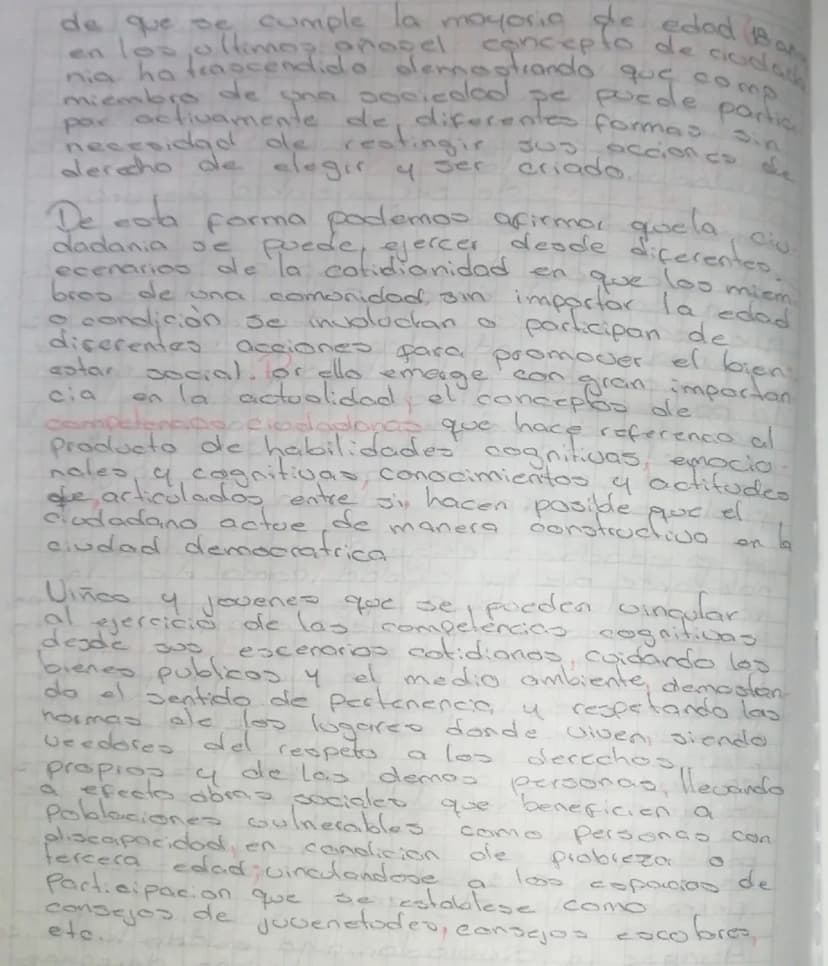 de que se cumple la mayoria de edad (18 añ
en los ultimos anosel concepto de ciudada
nia ha trascendido demostrando que como
miembro de una sociedad se puede partici
par activamente de diferentes formas sin
necesidad de restingir sus acciones de
derecho de elegir y ser criado.
De esta forma podemos afirmar quela ciu
dadania se puede, ejercer desde diferentes
ecenarios de la cotidianidad en que los miem
bros de una comunidad, sin importar la edad
o condición se involuctan o participan de
diferentes acciones para promover el bien
estar social. Por ello emerge con gran importan
cia en la actualidad, el conceptos de
competencias ciudadanas que hace referenca al
producto de habilidades cognitivas, emocio
nales, y cognitivas, conocimientos y actitudes
que, articulados entre si, hacen posible que el
ciudadano actue de manera constructiva en la
ciudad democratrica
Niños y jovenes que se, pueden vingular
al ejercicio de las competencias cognitivas
desde sus escenarios cotidianos, cuidando los
bienes publicos y el medio ambiente, demostan
do el sentido de pertenencia, y respetando las
normas de los lugares donde viven, siendo
veedores del respeto a los derechos,
propios y de las demas personas, llevando
a efecto obras sociales que beneficien a
poblaciones vulnerables como personas con
discapacidad, en condicion de probreza o
tercera edad; vinculandose a los espacios de
participacion que se establese como
consejos de juvenetudes, consejos escolares,
etc.